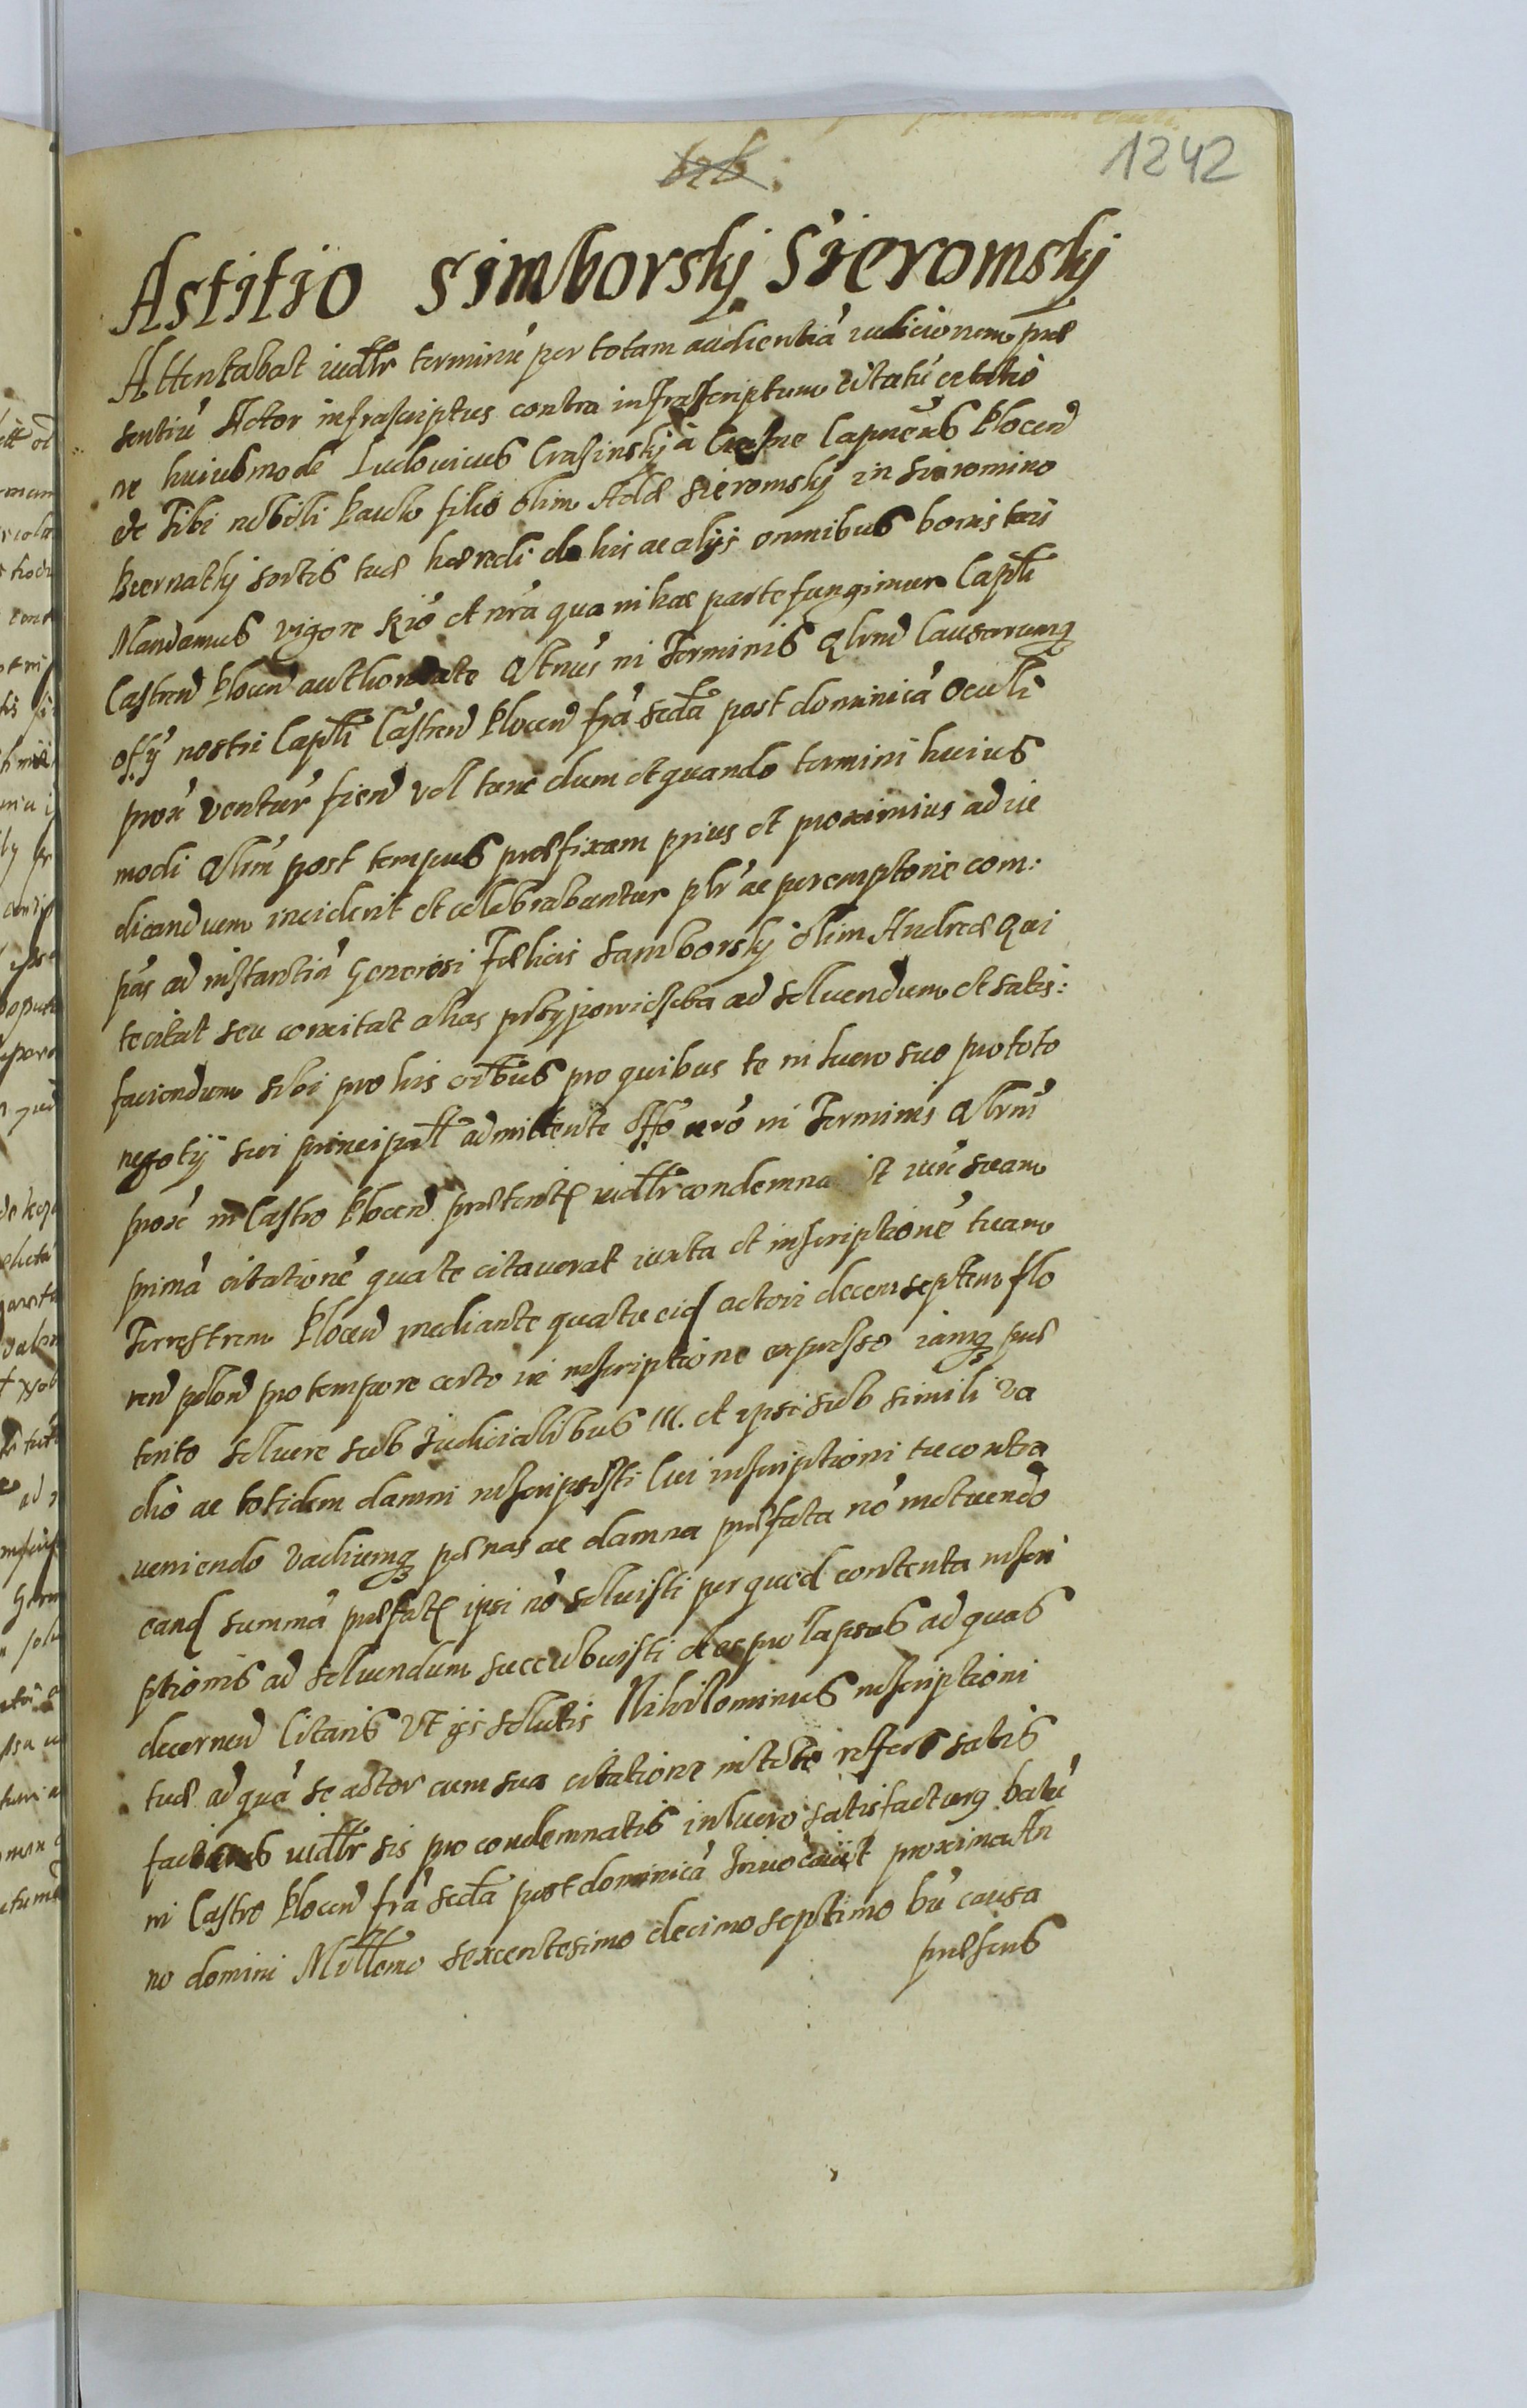 1242
Astitio Simborskj Sieromskj
Attentabat iudltr terminũ per totam audientiã iudiciorum præ
sentiũ Actor infrascriptus contra infrascriptum citatũ citatio
ne huiusmodi Ludovicus Crasinskj à Crasne Capneũs Plocen
etc Tibi nobili Paulo filio olim Adæ Sieromskj in Sieromino
Biernathj sortis tuæ hæredi de his ac alijs omnibus bonis tuis
Mandamus vigore Rió et nrã qua in hac parte fungimur Capłi
Castren Plocen authoritate Qtnũs in Terminis Qlrnd Causarumq
offỹ nostri Capłi Castren Plocen frã scdã post dominicã Oculi
prox ventur fiend vel tunc dum et quando termini huius
modi Qlrũ post tempus præfixam prius et proximius ad iu
dicandum inciderit et celebrabuntur plr ac peremptorie com:
pãs ad instantiã Generosi Fælicis Samborskj olim Andreæ Qui
te citat seu concitat alias przypowidscba ad soluendum et satis:
faciendum sibi pro his oĩbus pro quibus te in lucro suo pro toto
negotỹ sui principałł admittente Offo nrõ in Terminis Qlrnũ
prox in Castro Plocen præterit iudltr condemna it iux suam
primã citationẽ qua te citaverat iuxta et inscriptionẽ tuam
Terrestrem Plocen mediante qua tu eid actori decem septem flo
ren polon pro tempore certo in inscriptione expresso iamq præ
terito soluere sub Judicialibus III. et ipsi sub simili va
dio ac totidem damni inscripsisti Cui inscriptioni tu contra
veniendo Vadiumq pænas ac damna præfata nõ metuendo
eand summã præfat ipsi nõ soluisti per quod contenta inscri
ptionis ad soluendum succubuisti et ac pro lapsus ad quas
decernend Citaris Vt ijs solutis Nihilominus inscriptioni
tuæ ad quã se actor cum sua citatione in toto reffert satis
facturus iudltr sis pro condemnatis in lucro satisfacturq Datũ
in Castro Plocen frã scdã post dominicã Invocavit proxima An
no domini Millemo sexcentesimo decimo septimo bũ causa
præsens